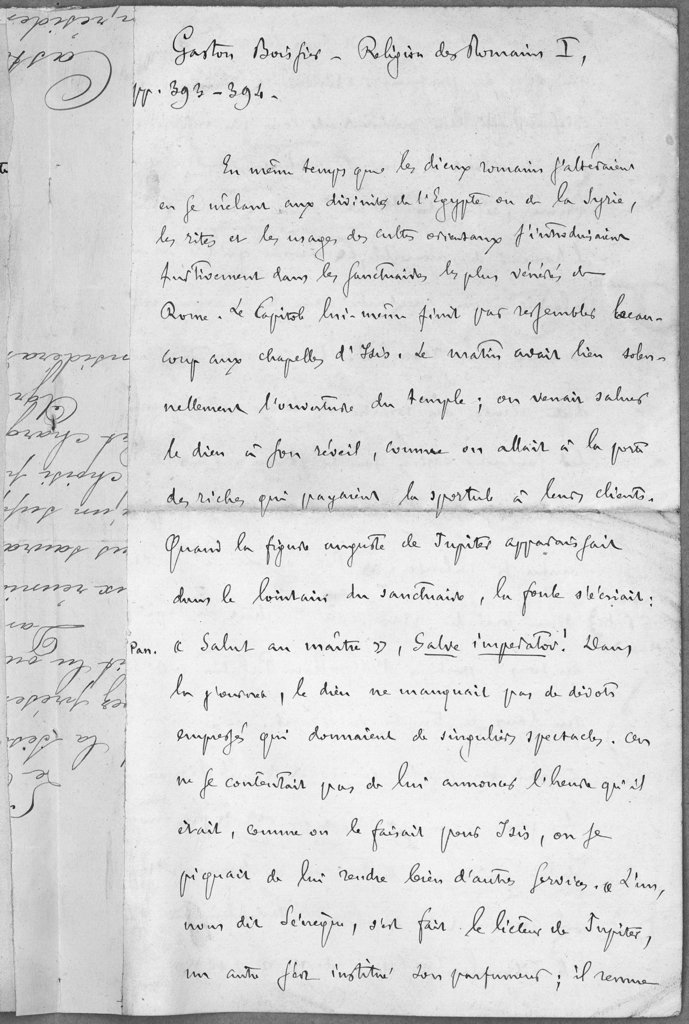 Gaston Boissier – Religion des Romains I,
pp. 393–394.
En même temps que les dieux romains s'altéraient
en se mêlant aux divinités de l'Egypte ou de la Syrie,
les rites et les usages des cultes orientaux s'introduisaient
furtivement dans les sanctuaires les plus vénérés de
Rome. Le Capitole lui-même finit par ressembler beau-
coup aux chapelles d'Isis. Le matin avait lieu solen-
nellement l'ouverture du temple ; on venait saluer
le dieu à son réveil, comme on allait à la porte
des riches qui payaient la sportule à leurs clients.
Quand la figure auguste de Jupiter apparaissait
dans le lointain du sanctuaire, la foule s'écriait :
Pan. « Salut au maître », Salve imperator! Dans
la journée, le dieu ne manquait pas de dévots
empressés qui donnaient de singuliers spectacles. On
ne se contentait pas de lui annoncer l'heure qu'il
était, comme on le faisait pour Isis, on se
piquait de lui rendre bien d'autres services. « L'un,
nous dit Sénèque, s'est fait le licteur de Jupiter,
un autre s'est institué son parfumeur ; il remue